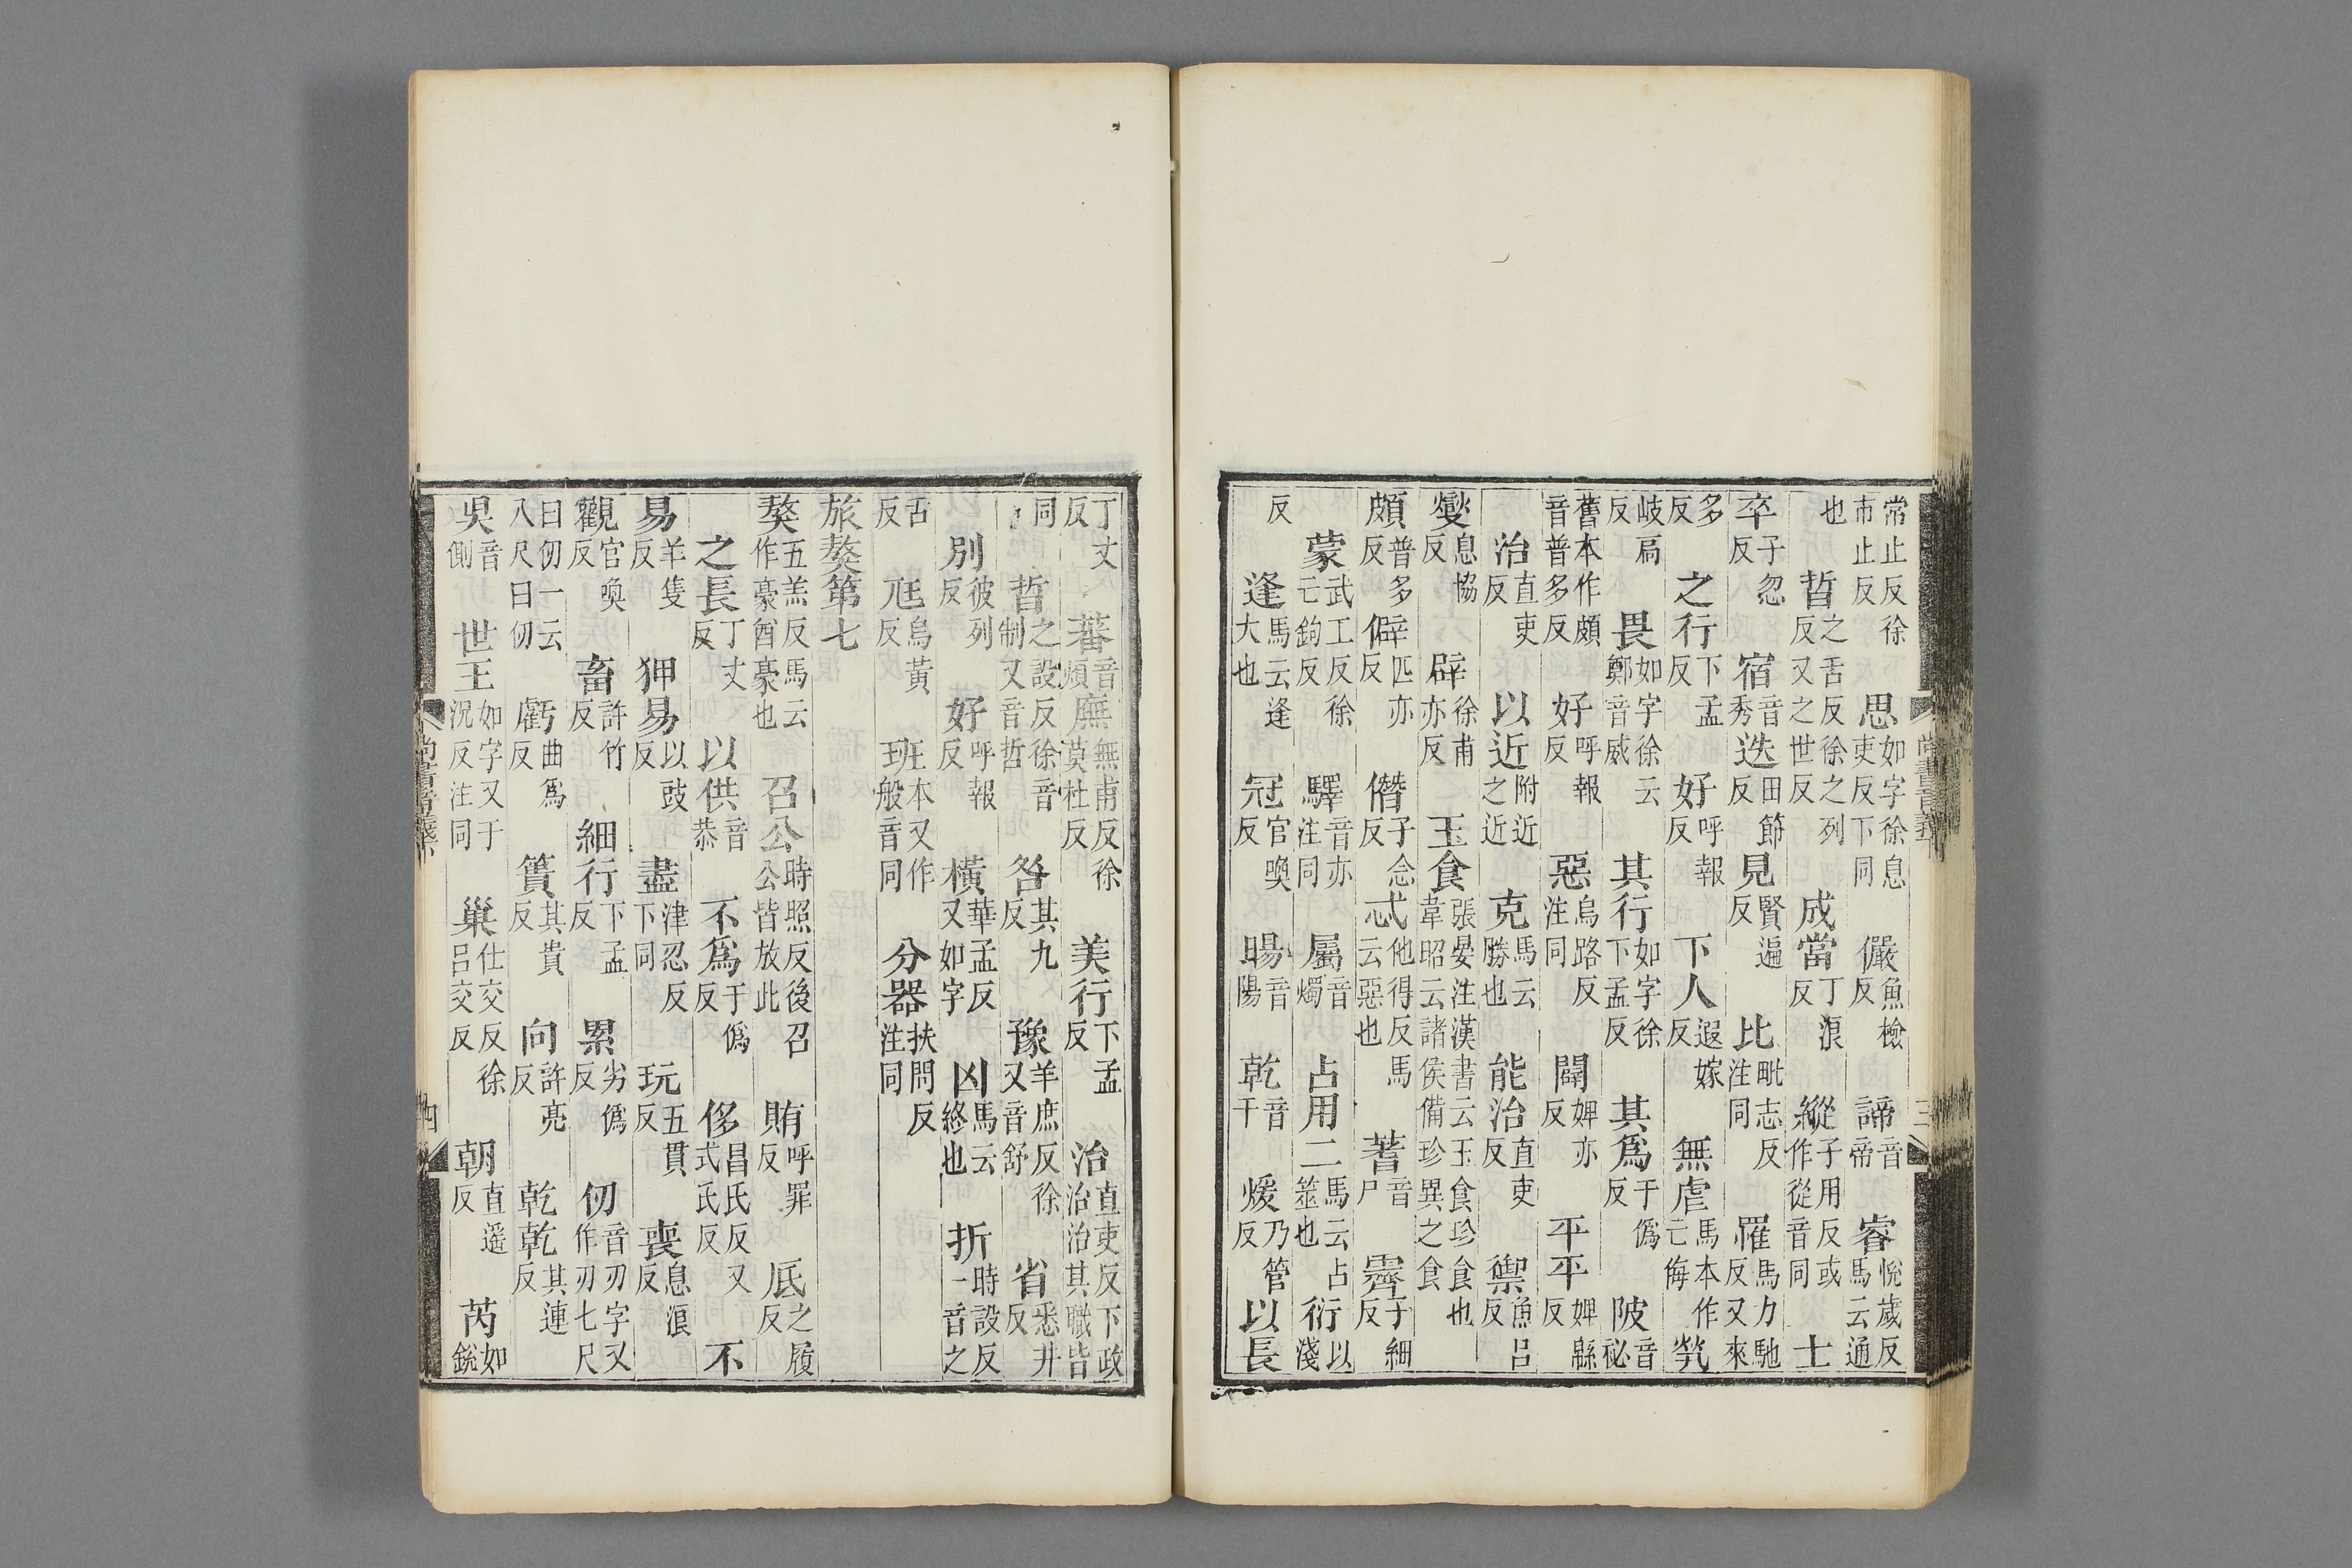 常止反徐市止反 思如字徐息吏反下同 儼魚檢反 諦音帝 睿悅歲反馬云通
也 哲之舌反徐之列反又之世反 成當丁浪反 縱子用反或作從音同 士
卒子忽反 宿音秀 迭田節反 見賢遍反 比毗志反注同 罹馬力馳反又來
多反 之行下孟反 好呼報反 下人遐嫁反 無虐馬本作亡侮 煢
岐扃反 畏如字徐云鄭音威 其行如字徐下孟反 其爲于僞反 陂音秘
舊本作頗音普多反 好呼報反 惡烏路反注同 闢婢亦反 平平婢緜反
治直吏反 以近附近之近 克馬云勝也 能治直吏反 禦魚呂反
燮息協反 辟徐甫亦反 玉食張晏注漢書云玉食珍食也韋昭云諸侯備珍異之食
頗普多反 僻匹亦反 僭子念反 忒他得反馬云惡也 蓍音尸 霽子細反
蒙武工反徐亡鉤反 驛音亦注同 屬音燭 占用二馬云占筮也 衍以淺
反 逢馬云逢大也 冠官喚反 暘音陽 乾音干 煖乃管反 以長
尚書音義 三
丁丈反 蕃音煩 廡無甫反徐莫杜反 美行下孟反 治直吏反下政治治其職皆
同 晢之設反徐音制又音哲 咎其九反 豫羊庶反徐又音舒 省悉井反
別彼列反 好呼報反 橫華孟反又如字 凶馬云終也 折時設反一音之
舌反 尪烏黃反 班本又作般音同 分器扶問反注同
旅獒第七
獒五羔反馬云作豪酋豪也 召公時照反後召公皆放此 賄呼罪反 底之履反
之長丁丈反 以供音恭 不爲于僞反 侈昌氏反又式氏反 不
易羊隻反 狎易以豉反 盡津忍反下同 玩五貫反 喪息浪反
觀官喚反 畜許竹反 細行下孟反 累劣僞反 仞音刃字又作刃七尺
曰仞一云八尺曰仞 虧曲爲反 簣其貴反 向許亮反 乾乾其連反
吳音側 世王如字又于況反注同 巢仕交反徐呂交反 朝直遙反 芮如銳
尚書音義 四